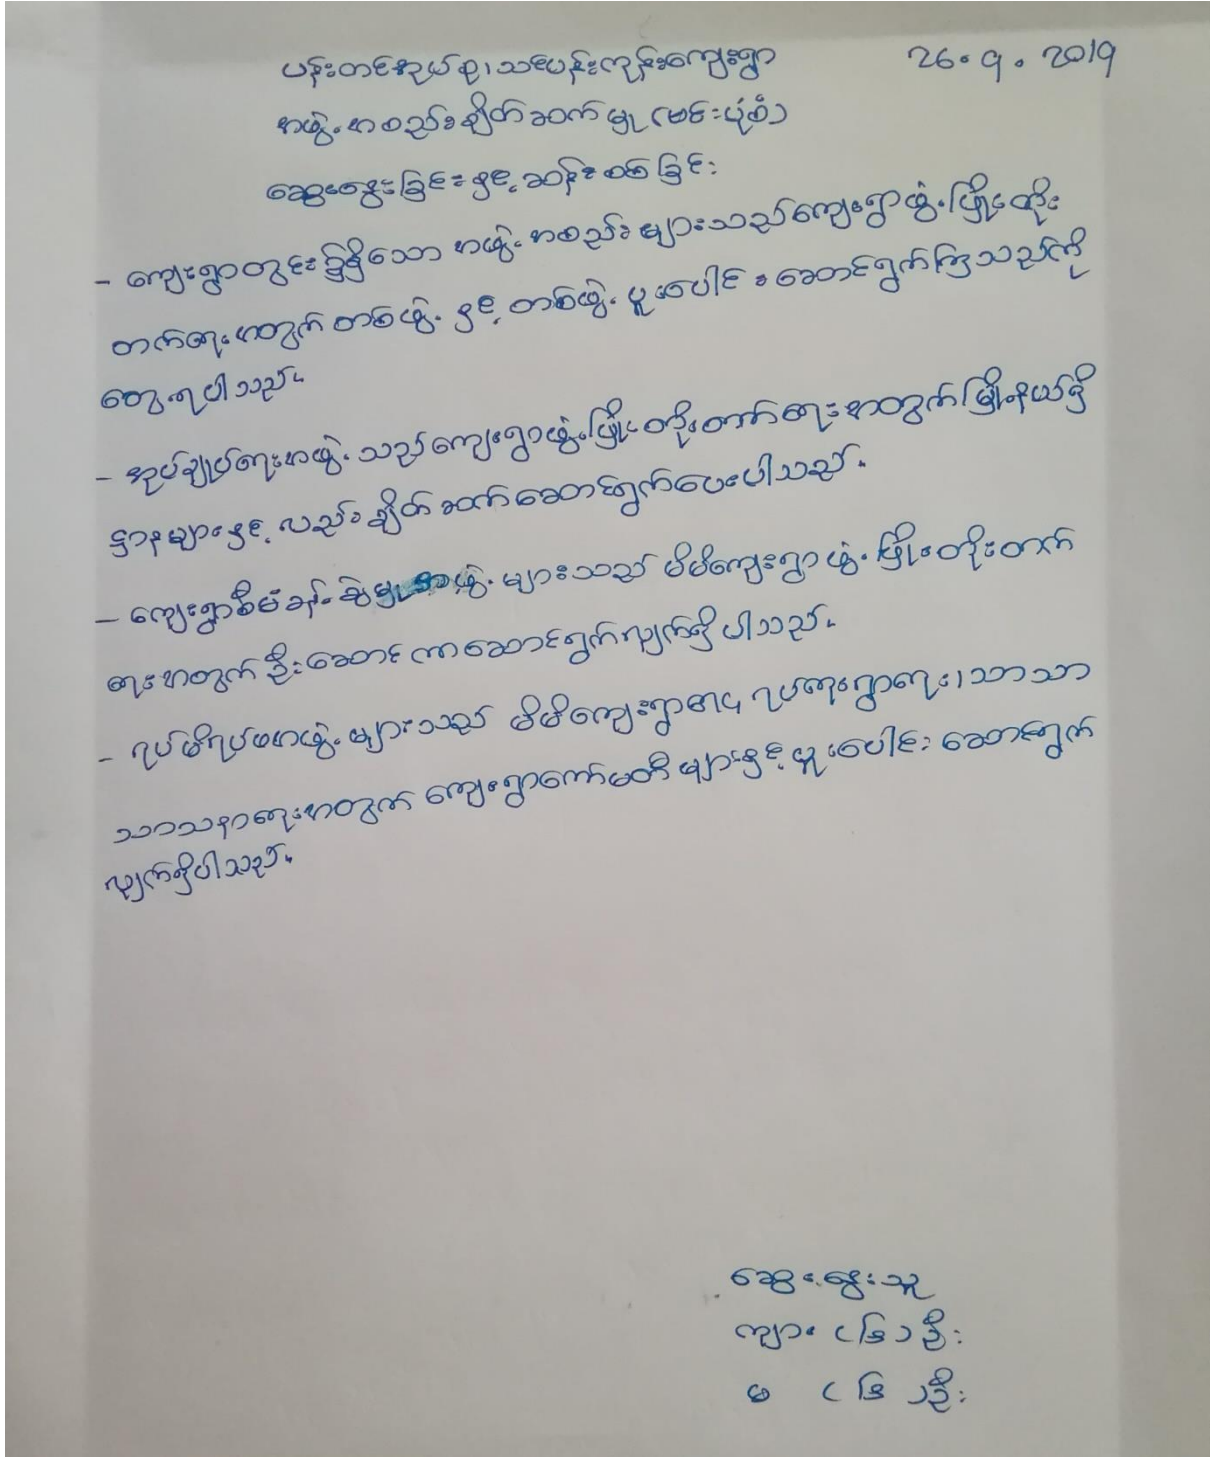 ပန်းတင်အုပ်စု၊ သပေပန်းကုန်းကျေးရွာ 26.9.2019
အဖွဲ့အစည်းချိတ်ဆက်မှု (မင်းပုံစံ)
ဆွေးနွေးခြင်းနှင့် ဆန်းစစ်ခြင်း
- ကျေးရွာတွင်းရှိသော အဖွဲ့အစည်းများသည် ကျေးရွာဖွံ့ဖြိုးတိုး
တက်ရေးအတွက် တစ်ဖွဲ့နှင့် တစ်ဖွဲ့ ပူးပေါင်းဆောင်ရွက်ကြသည်ကို
တွေ့ရပါသည်။
- အုပ်ချုပ်ရေးအဖွဲ့သည် ကျေးရွာဖွံ့ဖြိုးတိုးတက်ရေးအတွက် မြို့နယ်ရှိ
ဌာနများနှင့် လည်း ချိတ်ဆက်ဆောင်ရွက်ပေးပါသည်။
- ကျေးရွာစီမံခန့်ခွဲမှုအဖွဲ့များသည် မိမိကျေးရွာ ဖွံ့ဖြိုးတိုးတက်
ရေးအတွက် ဦးဆောင်ကာဆောင်ရွက်လျက်ရှိပါသည်။
- ရပ်မိရပ်ဖအဖွဲ့များသည် မိမိကျေးရွာ၏ ရပ်ရေးရွာရေး၊ သာသာ
သာသနာရေးအတွက် ကျေးရွာကော်မတီများနှင့် ပူးပေါင်းဆောင်ရွက်
လျက်ရှိပါသည်။
ဆွေးနွေးသူ
ကျား (၆) ဦး
မ (၆) ဦး